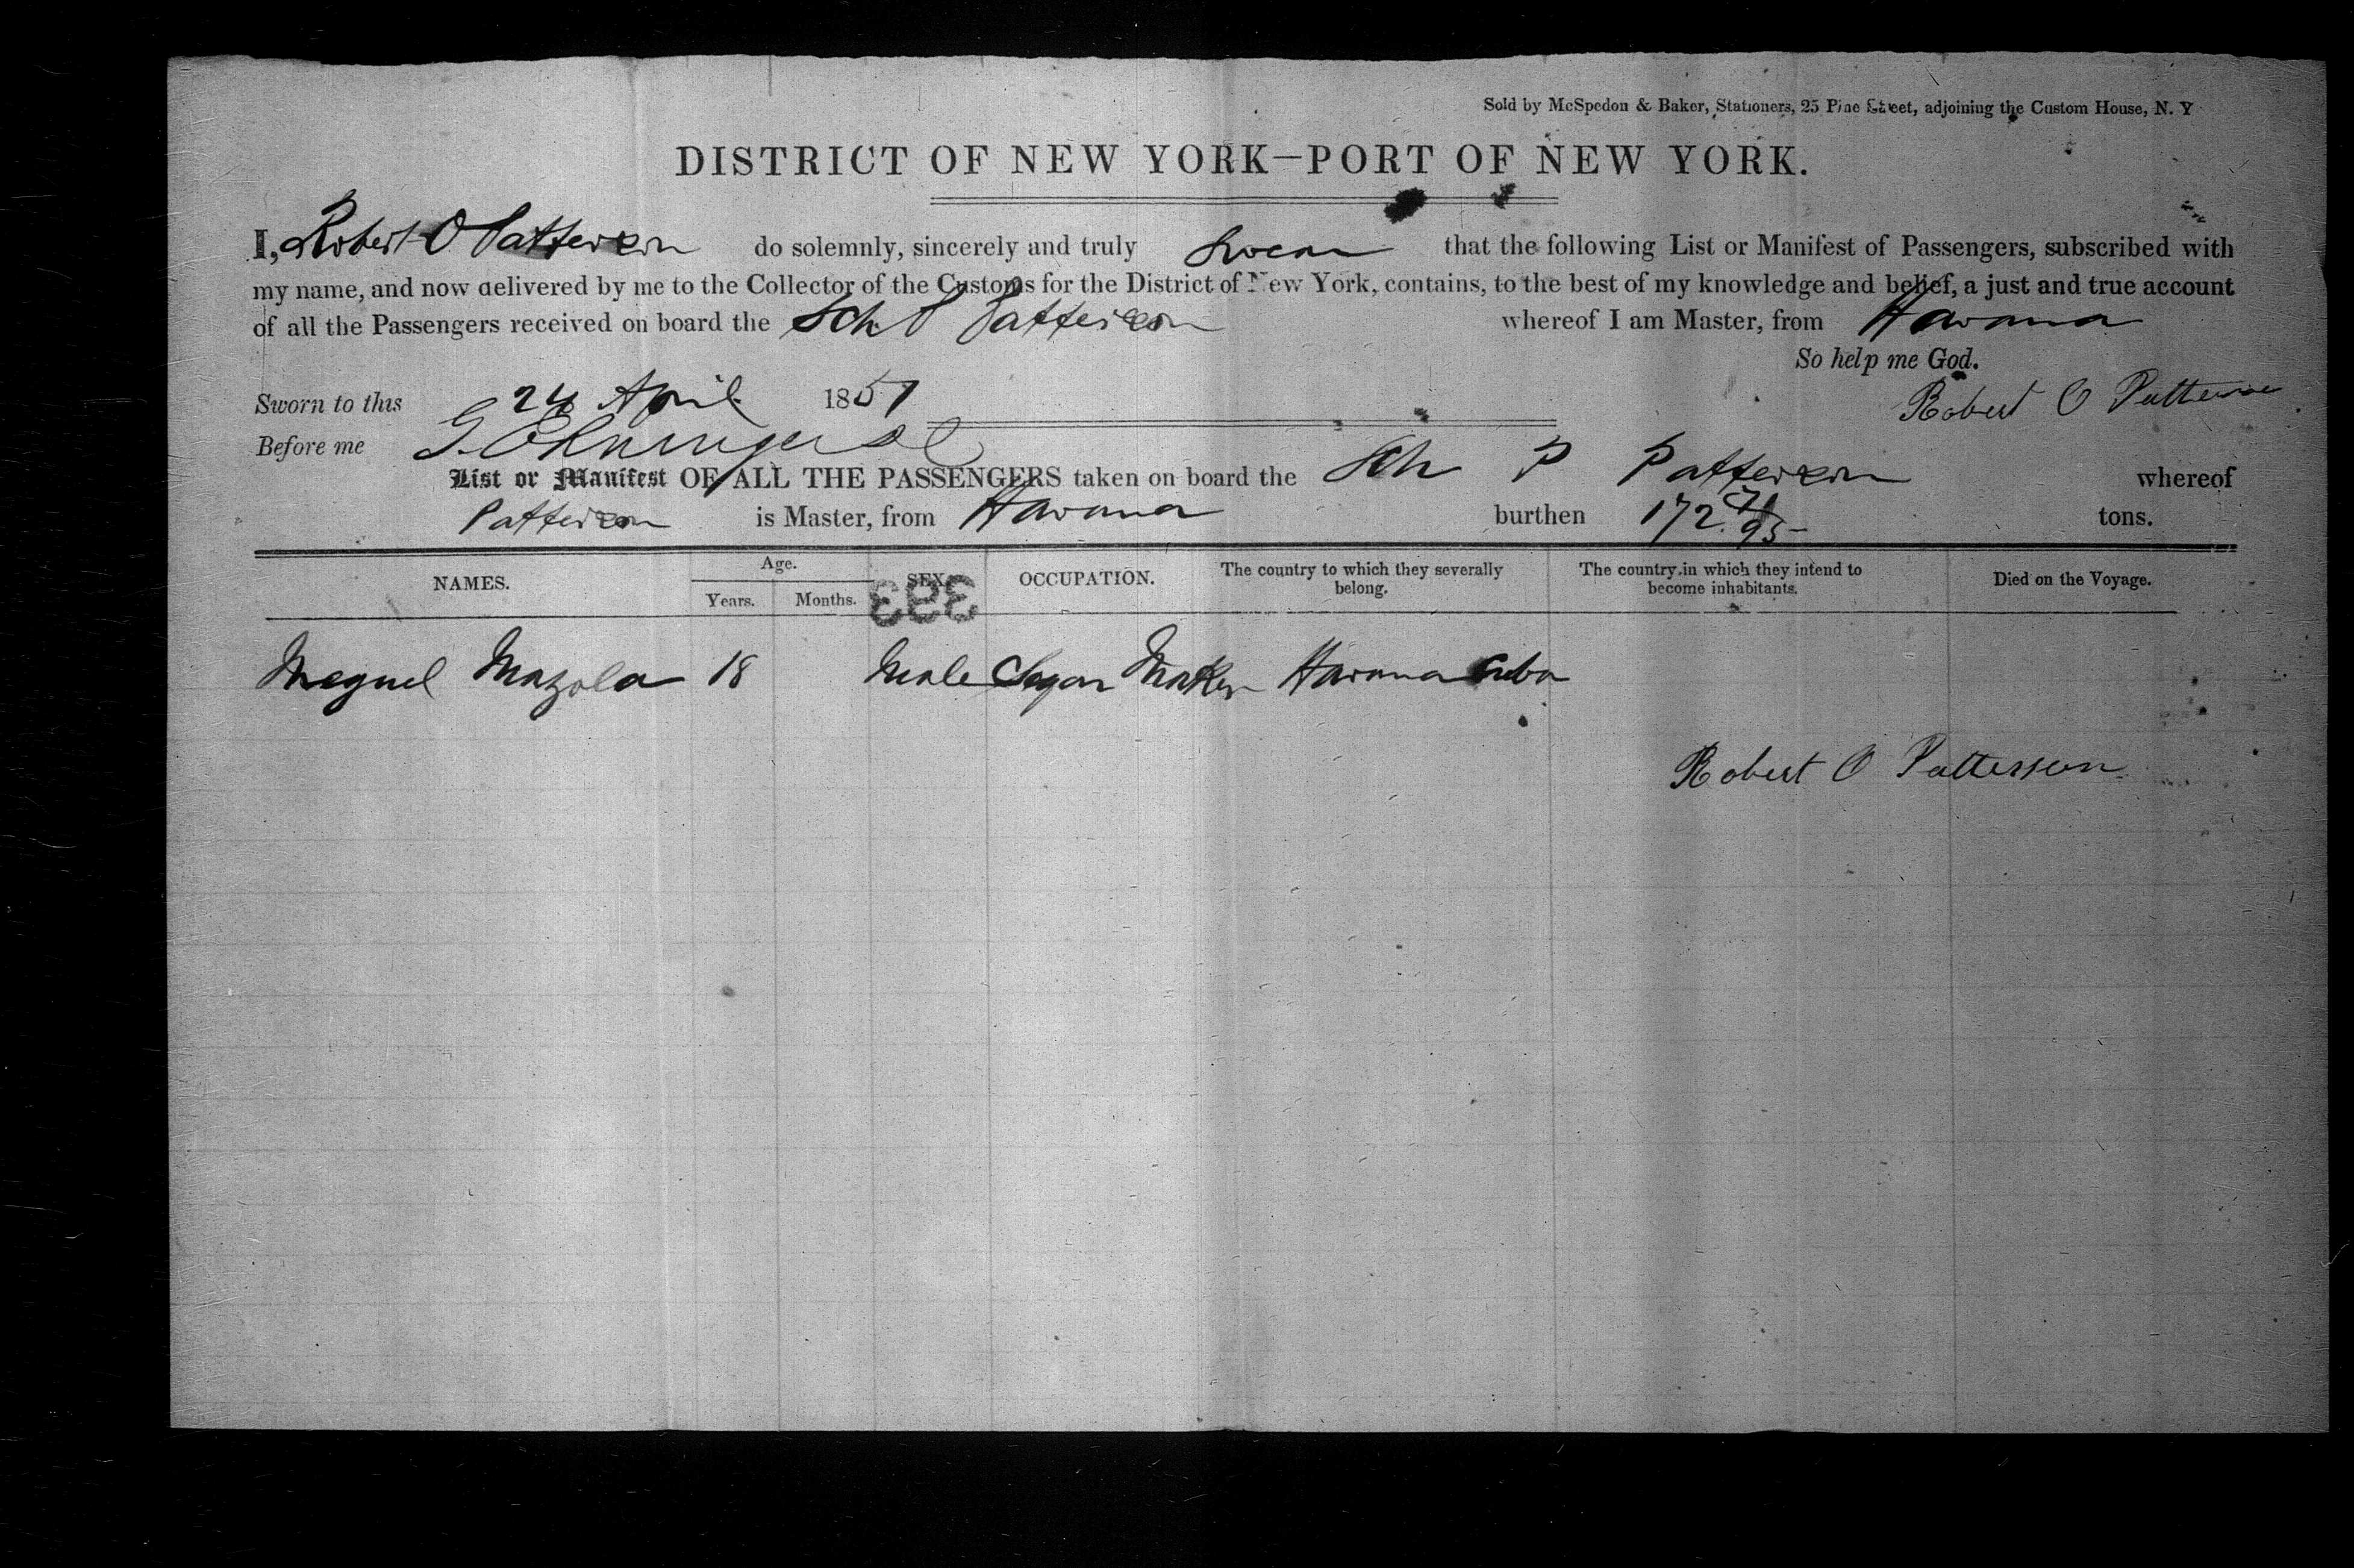 Sold by McSpedon & Baker, Stationers, 25 Pine Street, adjoining the Custom House, N. Y
DISTRICT OF NEW YORK—PORT OF NEW YORK.
I, Robert O Patterson do solemnly, sincerely and truly Swear that the following List or Manifest of Passengers, subscribed with
my name, and now delivered by me to the Collector of the Customs for the District of New York, contains, to the best of my knowledge and belief, a just and true account
of all the Passengers received on board the Sch. P Patterson whereof I am Master, from Havana
So help me God.
Sworn to this 24 April 1851
Robert O Patterson
Before me
List or Manifest OF ALL THE PASSENGERS taken on board the Sch P Patterson whereof
Patterson is Master, from Havana burthen 172. /95 tons.
NAMES. Age. Years. Months. SEX. OCCUPATION. The country to which they severally belong. The country in which they intend to become inhabitants. Died on the Voyage.
393
Meguel Mazola 18 Male Segar Maker Havana Cuba
Robert O Patterson